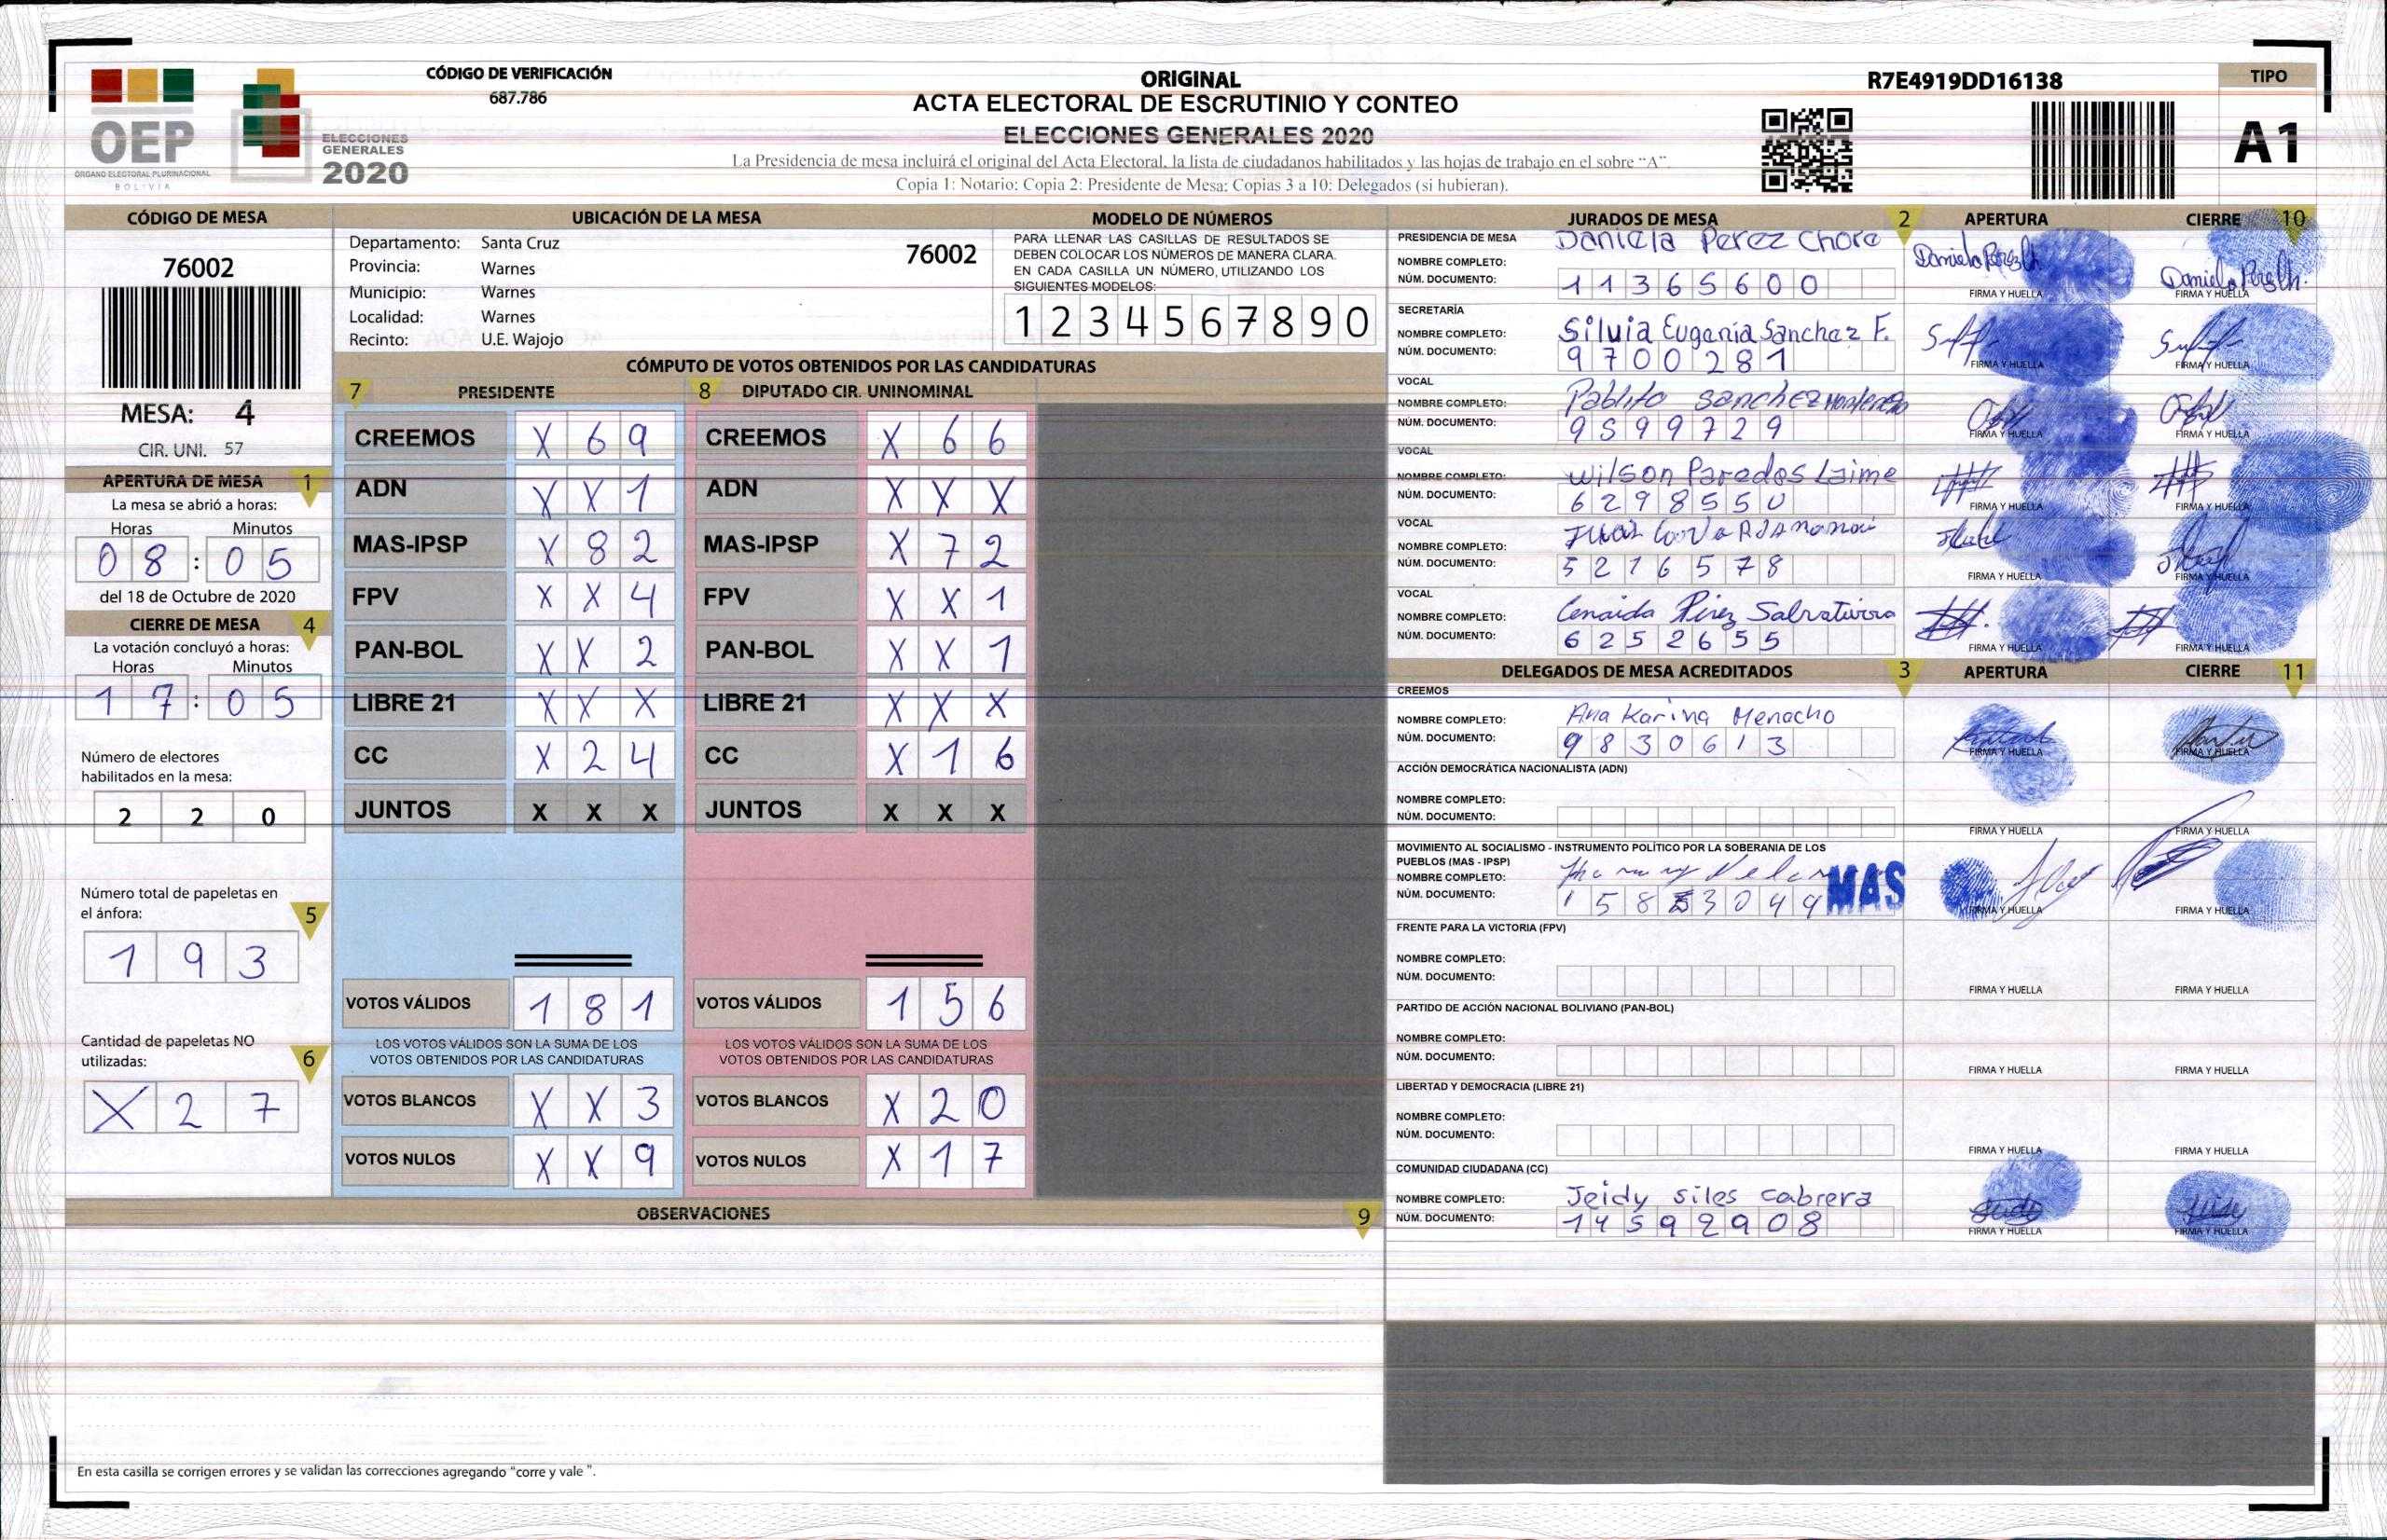 CÓDIGO DE VERIFICACIÓN
687.786
OEP
ÓRGANO ELECTORAL PLURINACIONAL
BOLIVIA
ELECCIONES
GENERALES
2020
ORIGINAL
ACTA ELECTORAL DE ESCRUTINIO Y CONTEO
ELECCIONES GENERALES 2020
La Presidencia de mesa incluirá el original del Acta Electoral, la lista de ciudadanos habilitados y las hojas de trabajo en el sobre "A".
Copia 1: Notario; Copia 2: Presidente de Mesa; Copias 3 a 10: Delegados (si hubieran).
R7E4919DD16138
TIPO
A1
CÓDIGO DE MESA
76002
MESA: 4
CIR. UNI. 57
APERTURA DE MESA 1
La mesa se abrió a horas:
Horas Minutos
08:05
del 18 de Octubre de 2020
CIERRE DE MESA 4
La votación concluyó a horas:
Horas Minutos
17:05
Número de electores
habilitados en la mesa:
2 2 0
Número total de papeletas en
el ánfora: 5
1 9 3
Cantidad de papeletas NO
utilizadas: 6
X 2 7
UBICACIÓN DE LA MESA
Departamento: Santa Cruz 76002
Provincia: Warnes
Municipio: Warnes
Localidad: Warnes
Recinto: U.E. Wajojo
MODELO DE NÚMEROS
PARA LLENAR LAS CASILLAS DE RESULTADOS SE
DEBEN COLOCAR LOS NÚMEROS DE MANERA CLARA.
EN CADA CASILLA UN NÚMERO, UTILIZANDO LOS
SIGUIENTES MODELOS:
1 2 3 4 5 6 7 8 9 0
CÓMPUTO DE VOTOS OBTENIDOS POR LAS CANDIDATURAS
7 PRESIDENTE 8 DIPUTADO CIR. UNINOMINAL
CREEMOS X 6 9 CREEMOS X 6 6
ADN X X 1 ADN X X X
MAS-IPSP X 8 2 MAS-IPSP X 7 2
FPV X X 4 FPV X X 1
PAN-BOL X X 2 PAN-BOL X X 1
LIBRE 21 X X X LIBRE 21 X X X
CC X 2 4 CC X 1 6
JUNTOS X X X JUNTOS X X X
VOTOS VÁLIDOS 1 8 1 VOTOS VÁLIDOS 1 5 6
LOS VOTOS VÁLIDOS SON LA SUMA DE LOS LOS VOTOS VÁLIDOS SON LA SUMA DE LOS
VOTOS OBTENIDOS POR LAS CANDIDATURAS VOTOS OBTENIDOS POR LAS CANDIDATURAS
VOTOS BLANCOS X X 3 VOTOS BLANCOS X 2 0
VOTOS NULOS X X 9 VOTOS NULOS X 1 7
OBSERVACIONES 9
En esta casilla se corrigen errores y se validan las correcciones agregando "corre y vale ".
JURADOS DE MESA 2 APERTURA CIERRE 10
PRESIDENCIA DE MESA
NOMBRE COMPLETO: Daniela Perez Chore
NÚM. DOCUMENTO: 11365600 FIRMA Y HUELLA FIRMA Y HUELLA
SECRETARÍA
NOMBRE COMPLETO: Silvia Eugenia Sanchez F.
NÚM. DOCUMENTO: 9700281 FIRMA Y HUELLA FIRMA Y HUELLA
VOCAL
NOMBRE COMPLETO: Pablito Sanchez
NÚM. DOCUMENTO: 9599729 FIRMA Y HUELLA FIRMA Y HUELLA
VOCAL
NOMBRE COMPLETO: Wilson Paredes Laime
NÚM. DOCUMENTO: 6298550 FIRMA Y HUELLA FIRMA Y HUELLA
VOCAL
NOMBRE COMPLETO:
NÚM. DOCUMENTO: 5216578 FIRMA Y HUELLA FIRMA Y HUELLA
VOCAL
NOMBRE COMPLETO: Cenaida Pérez
NÚM. DOCUMENTO: 6252655 FIRMA Y HUELLA FIRMA Y HUELLA
DELEGADOS DE MESA ACREDITADOS 3 APERTURA CIERRE 11
CREEMOS
NOMBRE COMPLETO: Ana Karina Menacho
NÚM. DOCUMENTO: 9830613 FIRMA Y HUELLA FIRMA Y HUELLA
ACCIÓN DEMOCRÁTICA NACIONALISTA (ADN)
NOMBRE COMPLETO:
NÚM. DOCUMENTO: FIRMA Y HUELLA FIRMA Y HUELLA
MOVIMIENTO AL SOCIALISMO - INSTRUMENTO POLÍTICO POR LA SOBERANIA DE LOS
PUEBLOS (MAS - IPSP)
NOMBRE COMPLETO:
NÚM. DOCUMENTO: MAS FIRMA Y HUELLA FIRMA Y HUELLA
FRENTE PARA LA VICTORIA (FPV)
NOMBRE COMPLETO:
NÚM. DOCUMENTO: FIRMA Y HUELLA FIRMA Y HUELLA
PARTIDO DE ACCIÓN NACIONAL BOLIVIANO (PAN-BOL)
NOMBRE COMPLETO:
NÚM. DOCUMENTO: FIRMA Y HUELLA FIRMA Y HUELLA
LIBERTAD Y DEMOCRACIA (LIBRE 21)
NOMBRE COMPLETO:
NÚM. DOCUMENTO: FIRMA Y HUELLA FIRMA Y HUELLA
COMUNIDAD CIUDADANA (CC)
NOMBRE COMPLETO: Jeidy Siles Cabrera
NÚM. DOCUMENTO: 14592908 FIRMA Y HUELLA FIRMA Y HUELLA